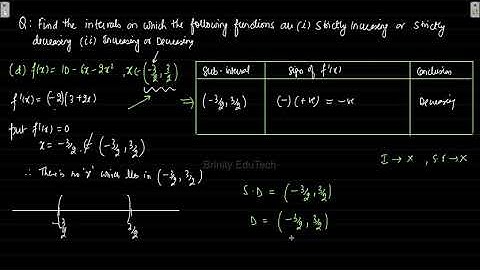 Q: Find the intervals on which the following functions are (i) Strictly Increasing or Strictly
decreasing (ii) Increasing or Decreasing
(d) f(x) = 10 - 6x - 2x², x ∈ (-3/2, 3/2)
f'(x) = (-2)(3+2x)
put f'(x) = 0
x = -3/2 ∉ (-3/2, 3/2)
∴ There is no 'x' which lies in (-3/2, 3/2)
-3/2 3/2
⇒ Sub-interval Sign of f'(x) Conclusion
(-3/2, 3/2) (-)(+ve) = -ve Decreasing
I → X , S.I → X
Brinity EduTech
S.D = (-3/2, 3/2)
D = (-3/2, 3/2)